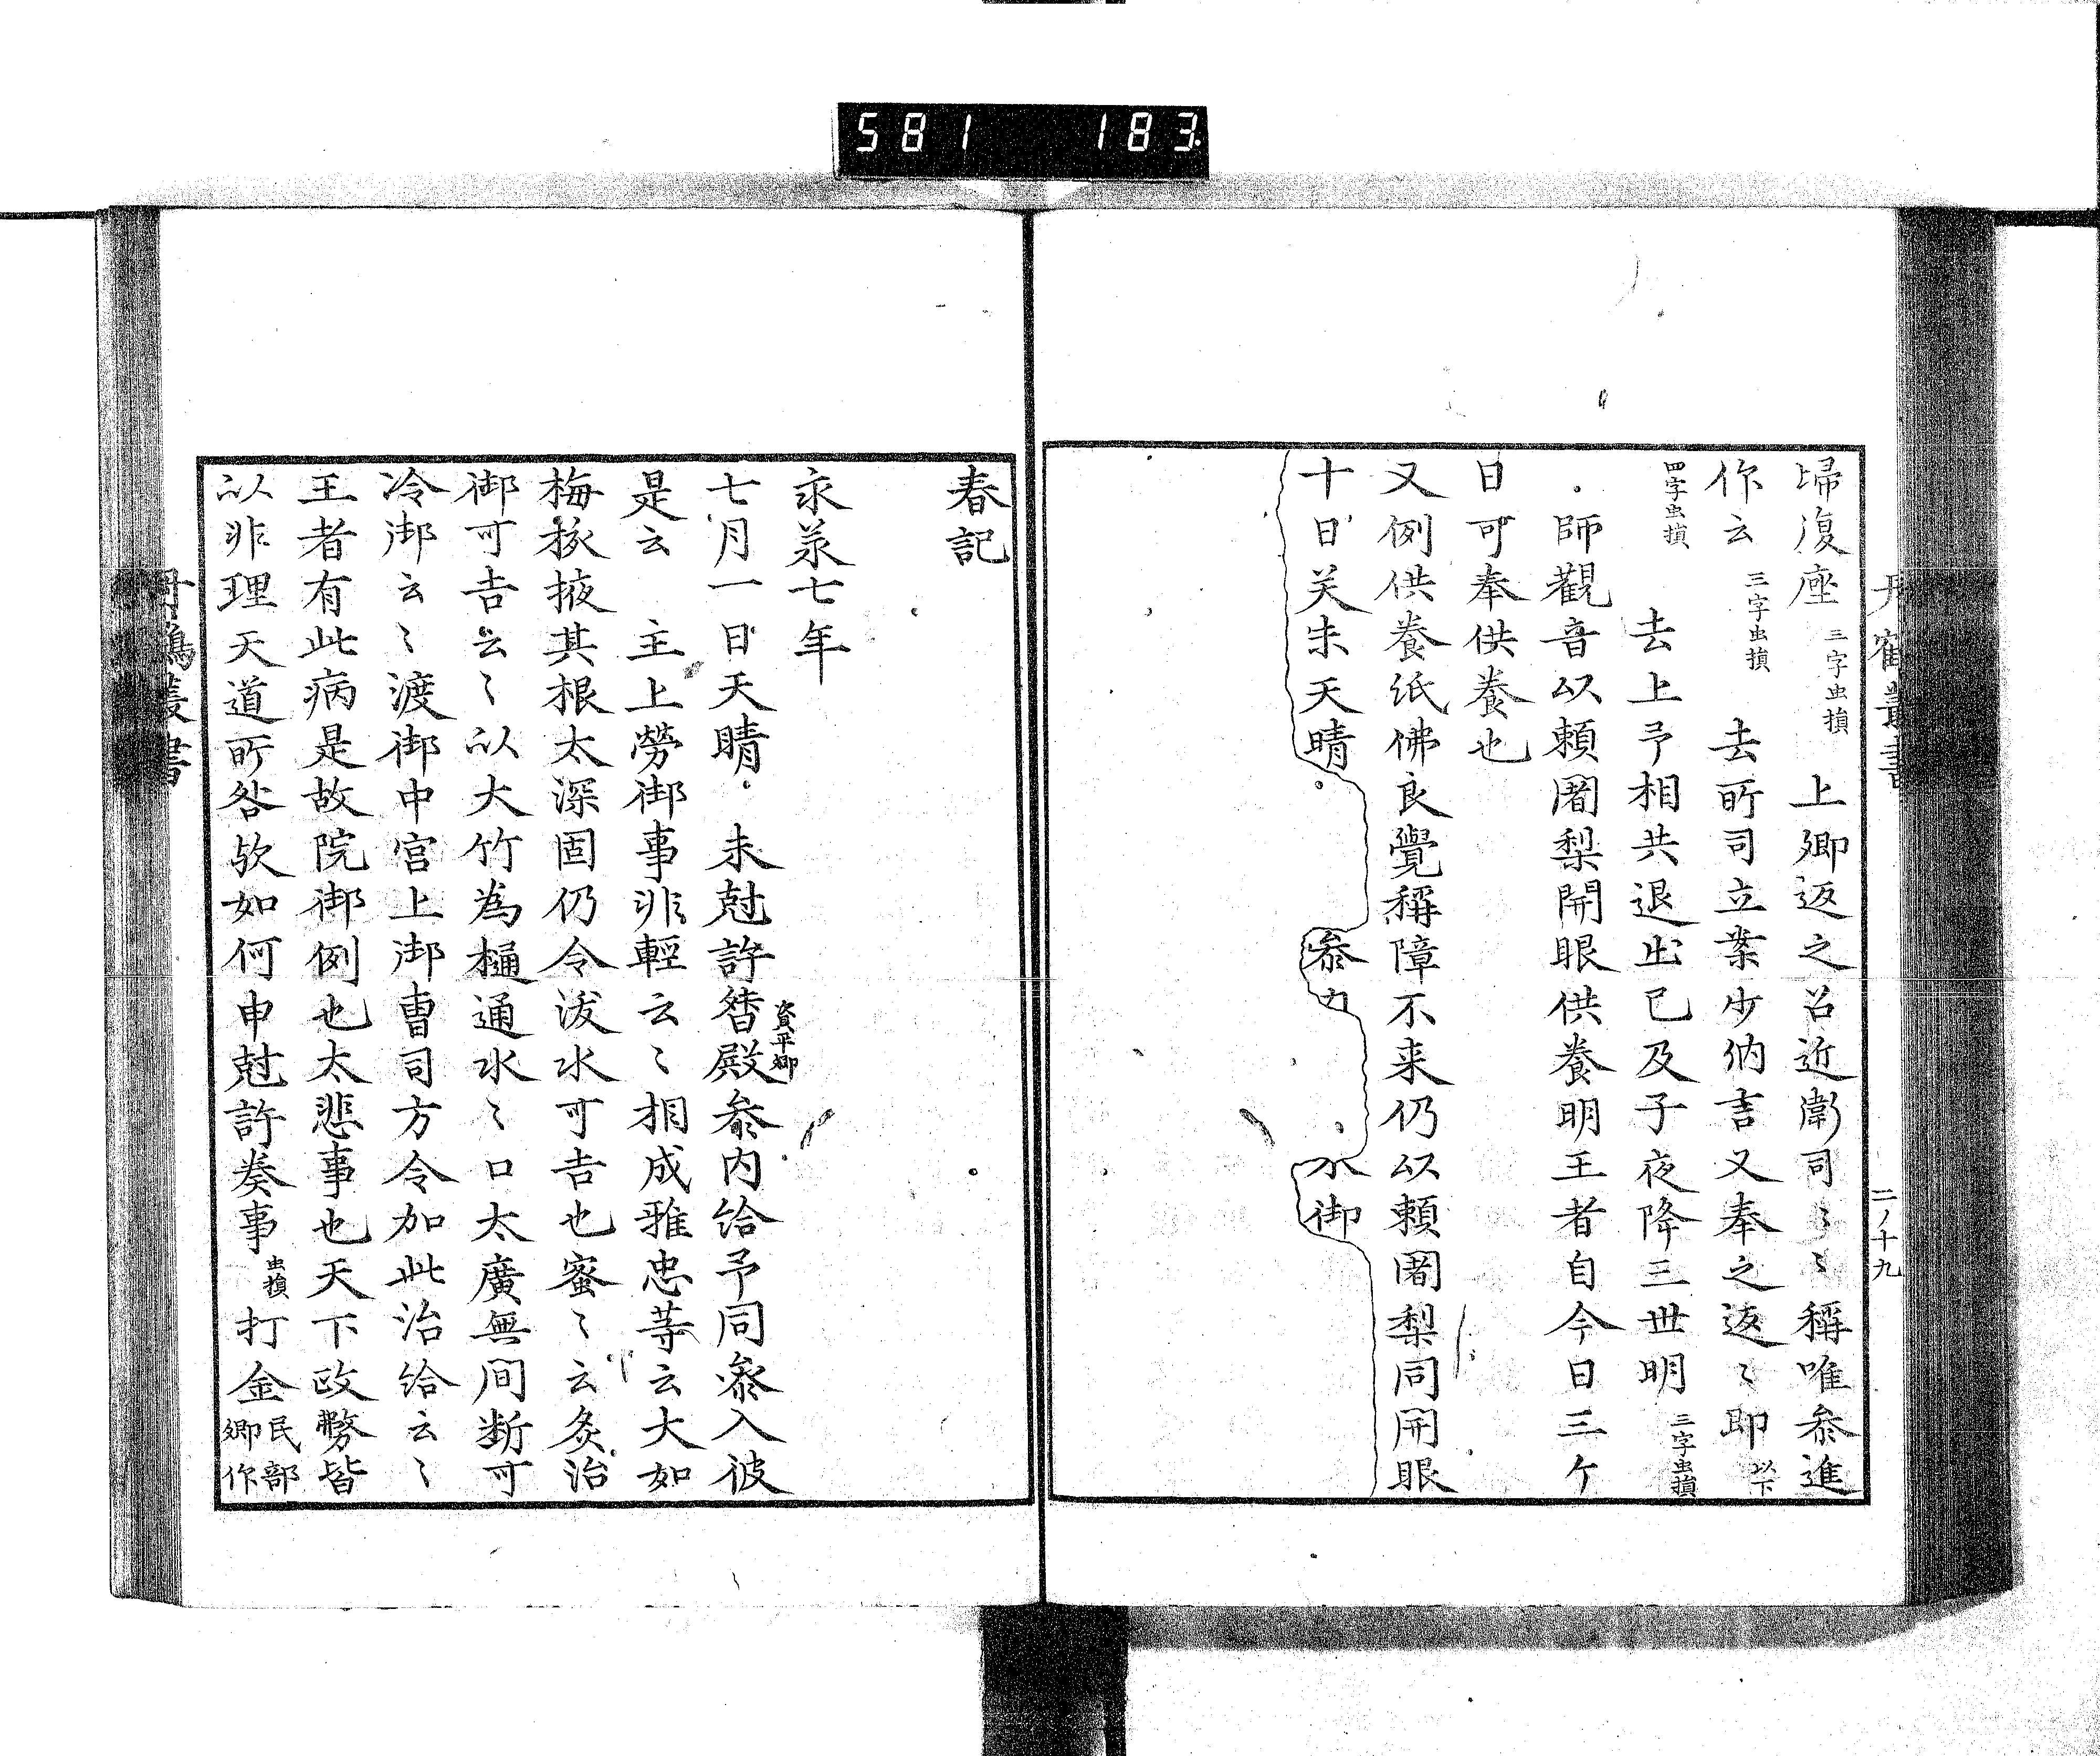 581 183
丹鶴叢書
二ノ十九
帰復座三字虫損上卿返之召近衛司〻〻稱唯參進
作云三字虫損去所司立案少納言又奉之返〻即以下
四字虫損去上予相共退出已及子夜降三世明三字虫損
師觀音以頼闍梨開眼供養明王者自今日三ケ
日可奉供養也
又例供養紙佛良覺稱障不来仍以頼闍梨同開眼
十日关未天晴參内小御
春記
永承七年
七月一日天晴未尅許督殿資平卿參内給予同參入彼
是云主上勞御事非輕云〻相成雅忠等云大如
梅核掖其根太深固仍令沃水可吉也蜜〻云灸治
御可吉云〻以大竹為樋通水〻口太廣無間断可
冷御云〻渡御中宮上御曹司方令加此治給云〻
王者有此病是故院御例也太悲事也天下政務皆
以非理天道所咎欤如何申尅許奏事虫損打金民部卿作
丹鶴叢書